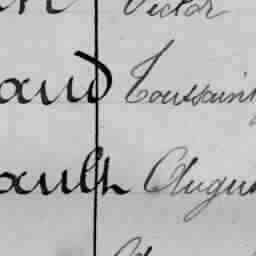 Victor
aud Toussaint
ault Augus